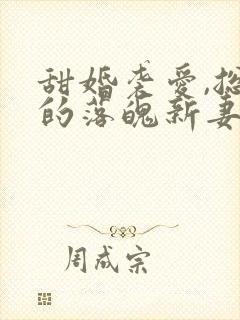 甜婚袭爱,总
的落魄新妻
周成宗